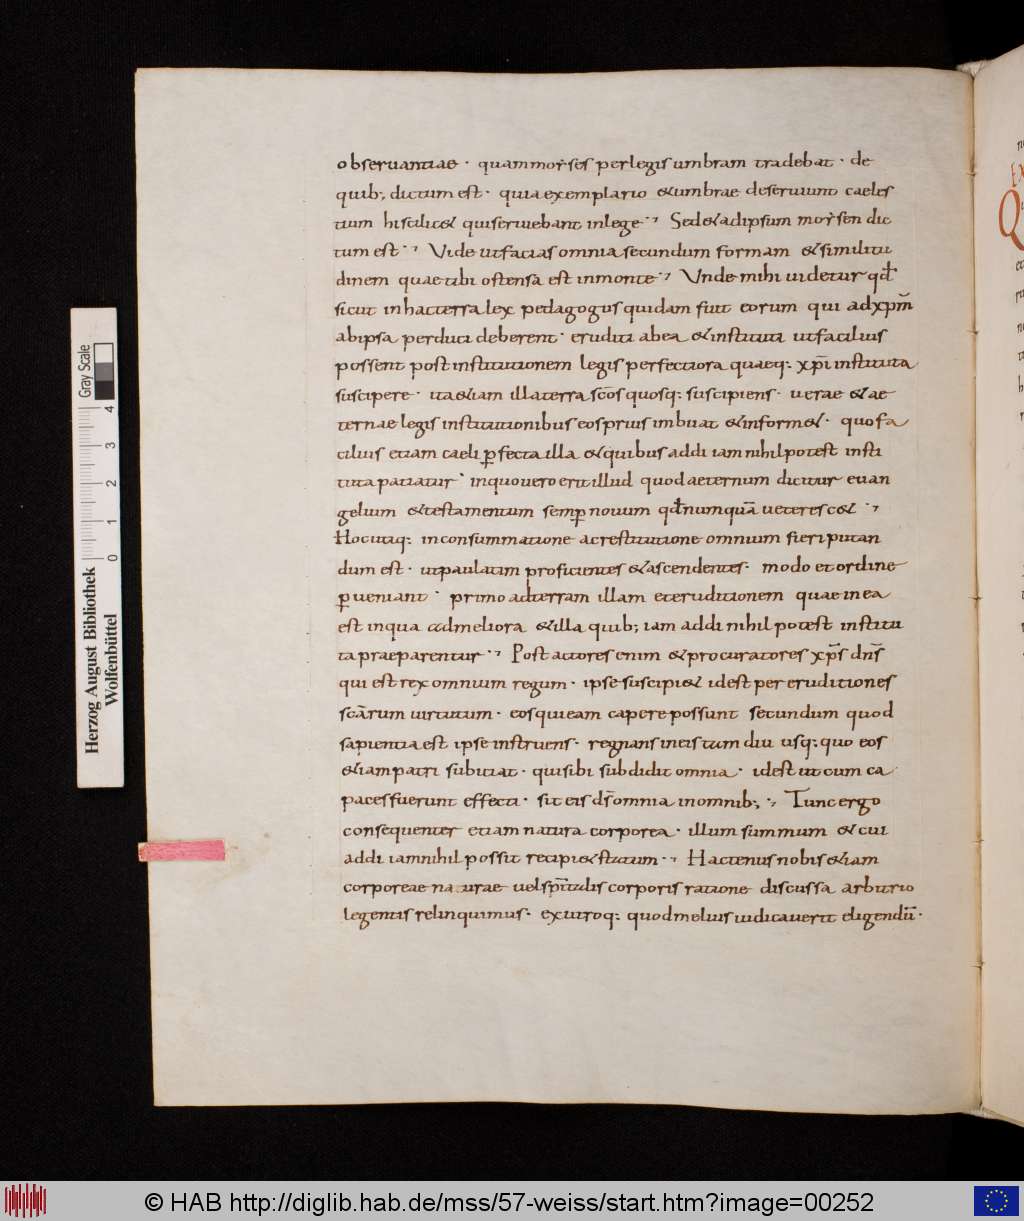 observantiae · quam moyses per legis umbram tradebat · de
quib; dictum est · quia exemplario & umbrae deserviunt caeles
tium hi scilic& qui serviebant in lege · Sed & ad ipsum moysen dic
tum est · Vide ut facias omnia secundum formam & similitu
dinem quae tibi ostensa est in monte · Unde mihi videtur qđ
sicut in hac terra lex pedagogus quidam fuit eorum qui ad xp̄m
ab ipsa perduci deberent · eruditi ab ea & instituti ut facilius
possent post institutionem legis perfectiora quaeq: xp̄i instituta
suscipere · ita &iam illa terra sc̄os quosq: suscipiens · verae & ae
ternae legis institutionibus eos prius imbuat & inform& · quo fa
cilius etiam caeli ꝑfecta illa & quibus addi iam nihil potest insti
tuta patiatur · in quo vero erit illud quod aeternum dicitur evan
gelium & testamentum semꝑ novum qđ numquā veteresc& ·
Hoc itaq: in consummatione ac restitutione omnium fieri putan
dum est · ut paulatim proficientes & ascendentes · modo et ordine
ꝑveniant · primo ad terram illam et eruditionem quae in ea
est in qua ad meliora & illa quib; iam addi nihil potest institu
ta praeparentur · Post actores enim & procuratores xp̄s dn̄s
qui est rex omnium regum · ipse suscipi& idest per eruditiones
scārum virtutum · eos qui eam capere possunt secundum quod
sapientia est ipse instruens · regnans in eis tum diu usq: quo eos
&iam patri subiciat · qui sibi subdidit omnia · idest ut cum ca
paces fuerunt effecti · sit eis ds̄ omnia in omnib; · Tunc ergo
consequenter etiam natura corporea · illum summum & cui
addi iam nihil possit recipi& statum · Hactenus nobis &iam
corporeae naturae vel sp̄italis corporis ratione discussa arbitrio
legentis relinquimus · ex utroq: quod melius iudicaverit eligendū ·
Gray Scale
0 1 2 3 4
Herzog August Bibliothek
Wolfenbüttel
© HAB http://diglib.hab.de/mss/57-weiss/start.htm?image=00252